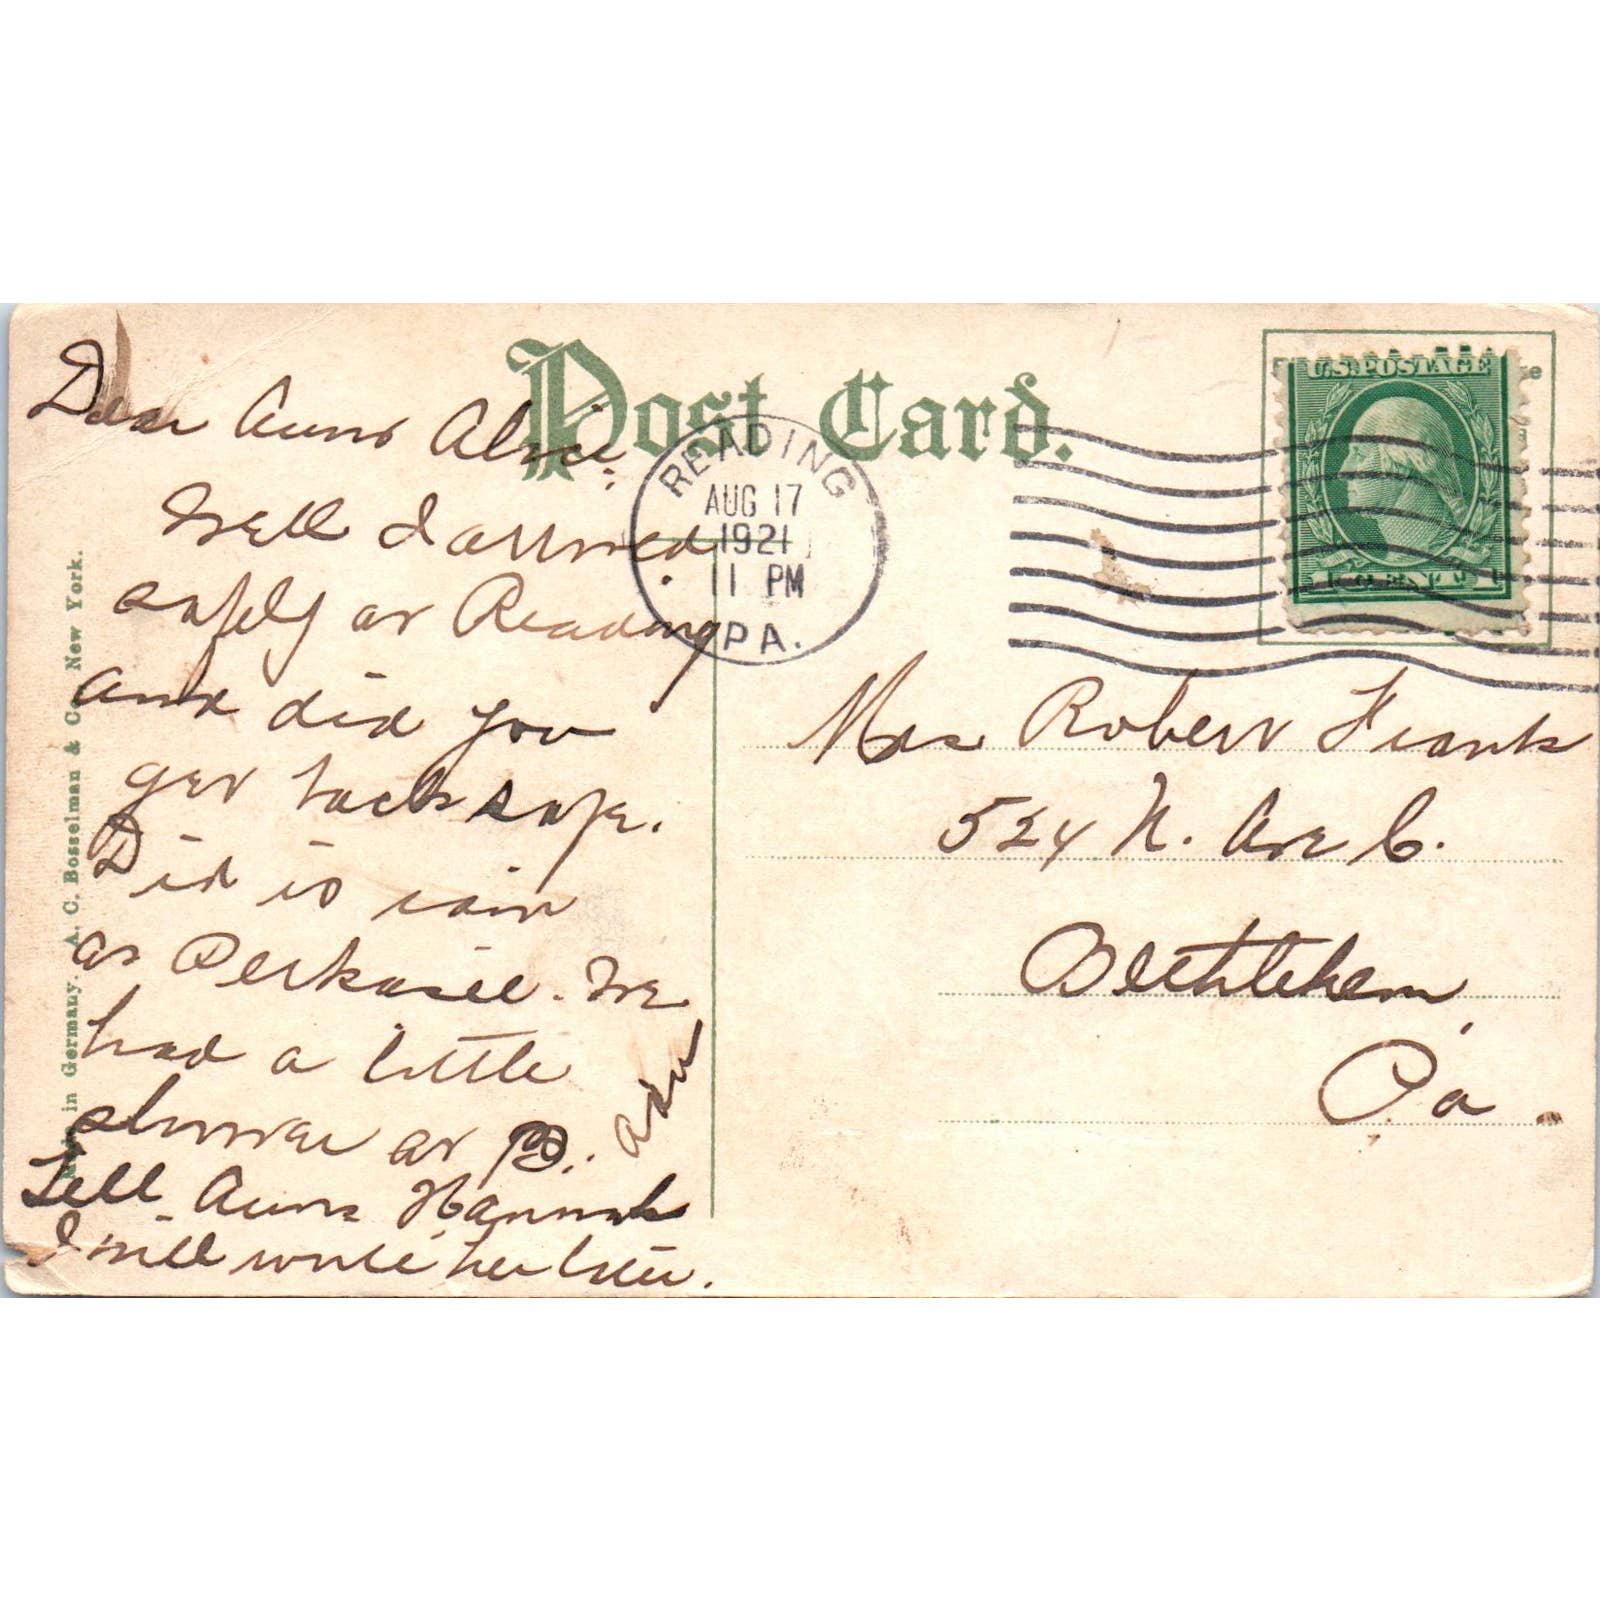 Post Card.
Dear Aunt Alice:
Well I arrived
safely at Reading
and did you
get back safe.
Did it rain
at Perkasie. We
had a little
shower at P.
Tell Aunt Hannah
I will write her later.
READING
AUG 17
1921
11 PM
PA.
U.S. POSTAGE
1 CENT 1
Mrs Robert Frank
524 N. Ave C.
Bethlehem,
Pa.
in Germany. A. C. Bosselman & Co. New York.